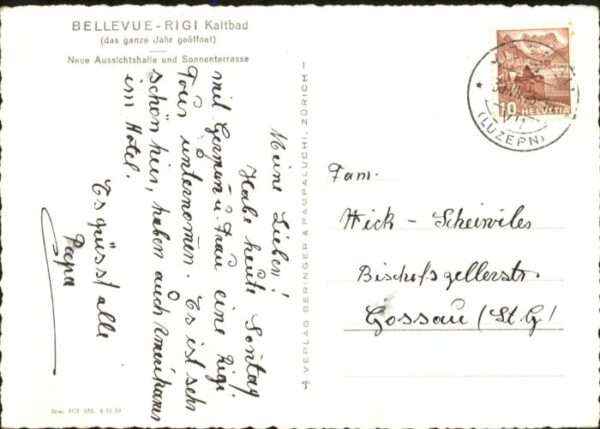 BELLEVUE-RIGI Kaltbad
(das ganze Jahr geöffnet)
Neue Aussichtshalle und Sonnenterrasse
Meine Lieben!
Habe heute Sontag
mit German u. Frau eine Rigi
Tour unternomen. Es ist sehr
schön hier, haben auch Amerikaner
im Hotel.
Es grüsst alle
Papa
VERLAG BERINGER & PAMPALUCHI, ZÜRICH
10 HELVETIA
(LUZERN)
Fam.
Hick - Scheiwiler
Bischofszellerstr.
Gossau (St. G)